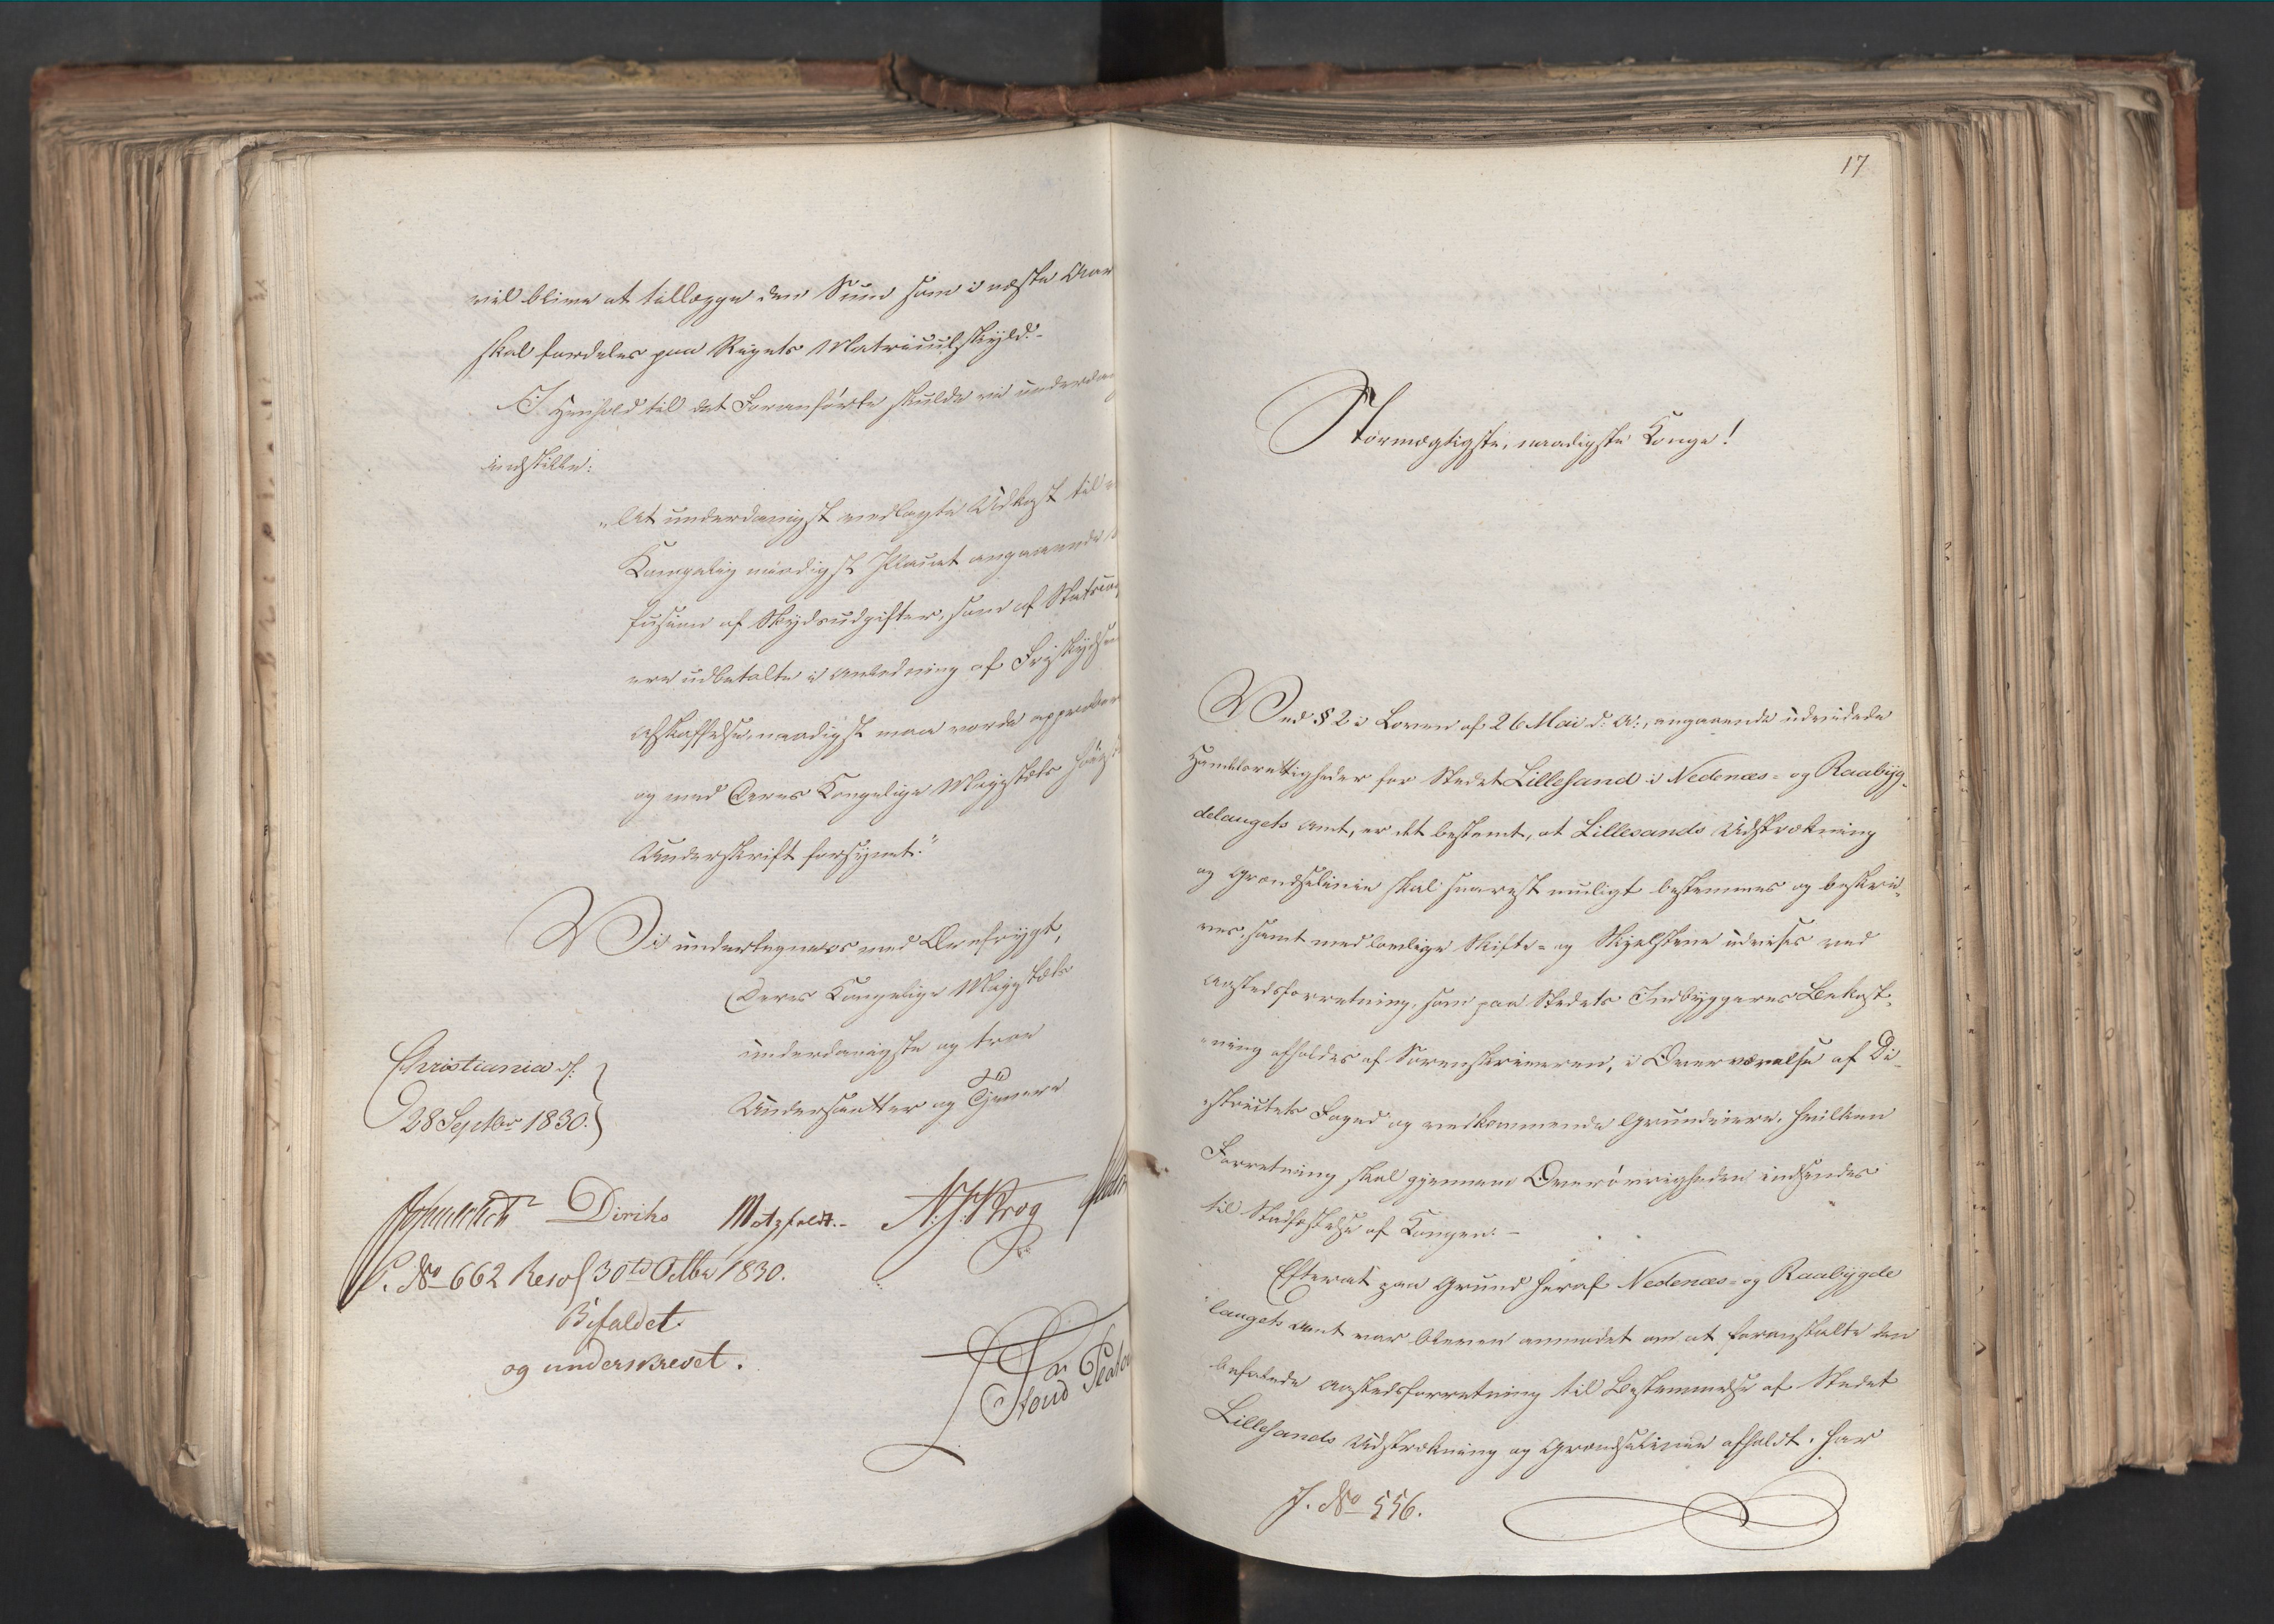 vil blive at tillægge den Sum som i næste Aar
skal fordeles paa Rigets Matriculskyld.-
I Henhold til det Foranførte skulde vi underdan
indstille:
„At underdanigst vedlagte Udkast til
Kongelig naadigst Placat angaaende
fusion af Skydsudgifter, som af Statscas
ere udbetalte i Anledning af Friskydsen
Afskaffelse, naadigst maa vorde approber
og med Deres Kongelige Majestæts Høie
Underskrift forsynet."
Vi undertegne os med Ærefrygt,
Deres Kongelige Majestæts
underdanigste og troe
Undersaatter og Tjenere
Christiania d:
28 Septbr 1830.
Diriks Motzfeldt.- N. J. Krog
P. No 662 Resol 30td Octbr 1830.
Bifaldet
og underskrevet.
17
Stormægtigste, naadigste Konge!
Ved § 2 i Loven af 26 Mai d: A:, angaaende udvidede
Handelsrettigheder for Stedet Lillesand i Nedenæs- og Raabyg-
delaugets Amt, er det bestemt, at Lillesands Udstrækning
og Grændselinie skal snarest muligt bestemmes og beskri-
ves, samt med lovlige Skifte- og Skjelstene udvises ved
Aastedsforretning, som paa Stedets Indbyggeres Bekost-
ning afholdes af Sorenskriveren, i Overværelse af Di-
strictets Foged og vedkommende Grundeiere, hvilken
Forretning skal gjennem Overøvrigheden indsendes
til Stadfæstelse af Kongen.-
Efterat paa Grund heraf Nedenæs- og Raabygde
laugets Amt var bleven anmodet om at foranstalte den
befalede Aastedsforretning til Bestemmelse af Stedet
Lillesands Udstrækning og Grændselinie afholdt, har
J. No 556.